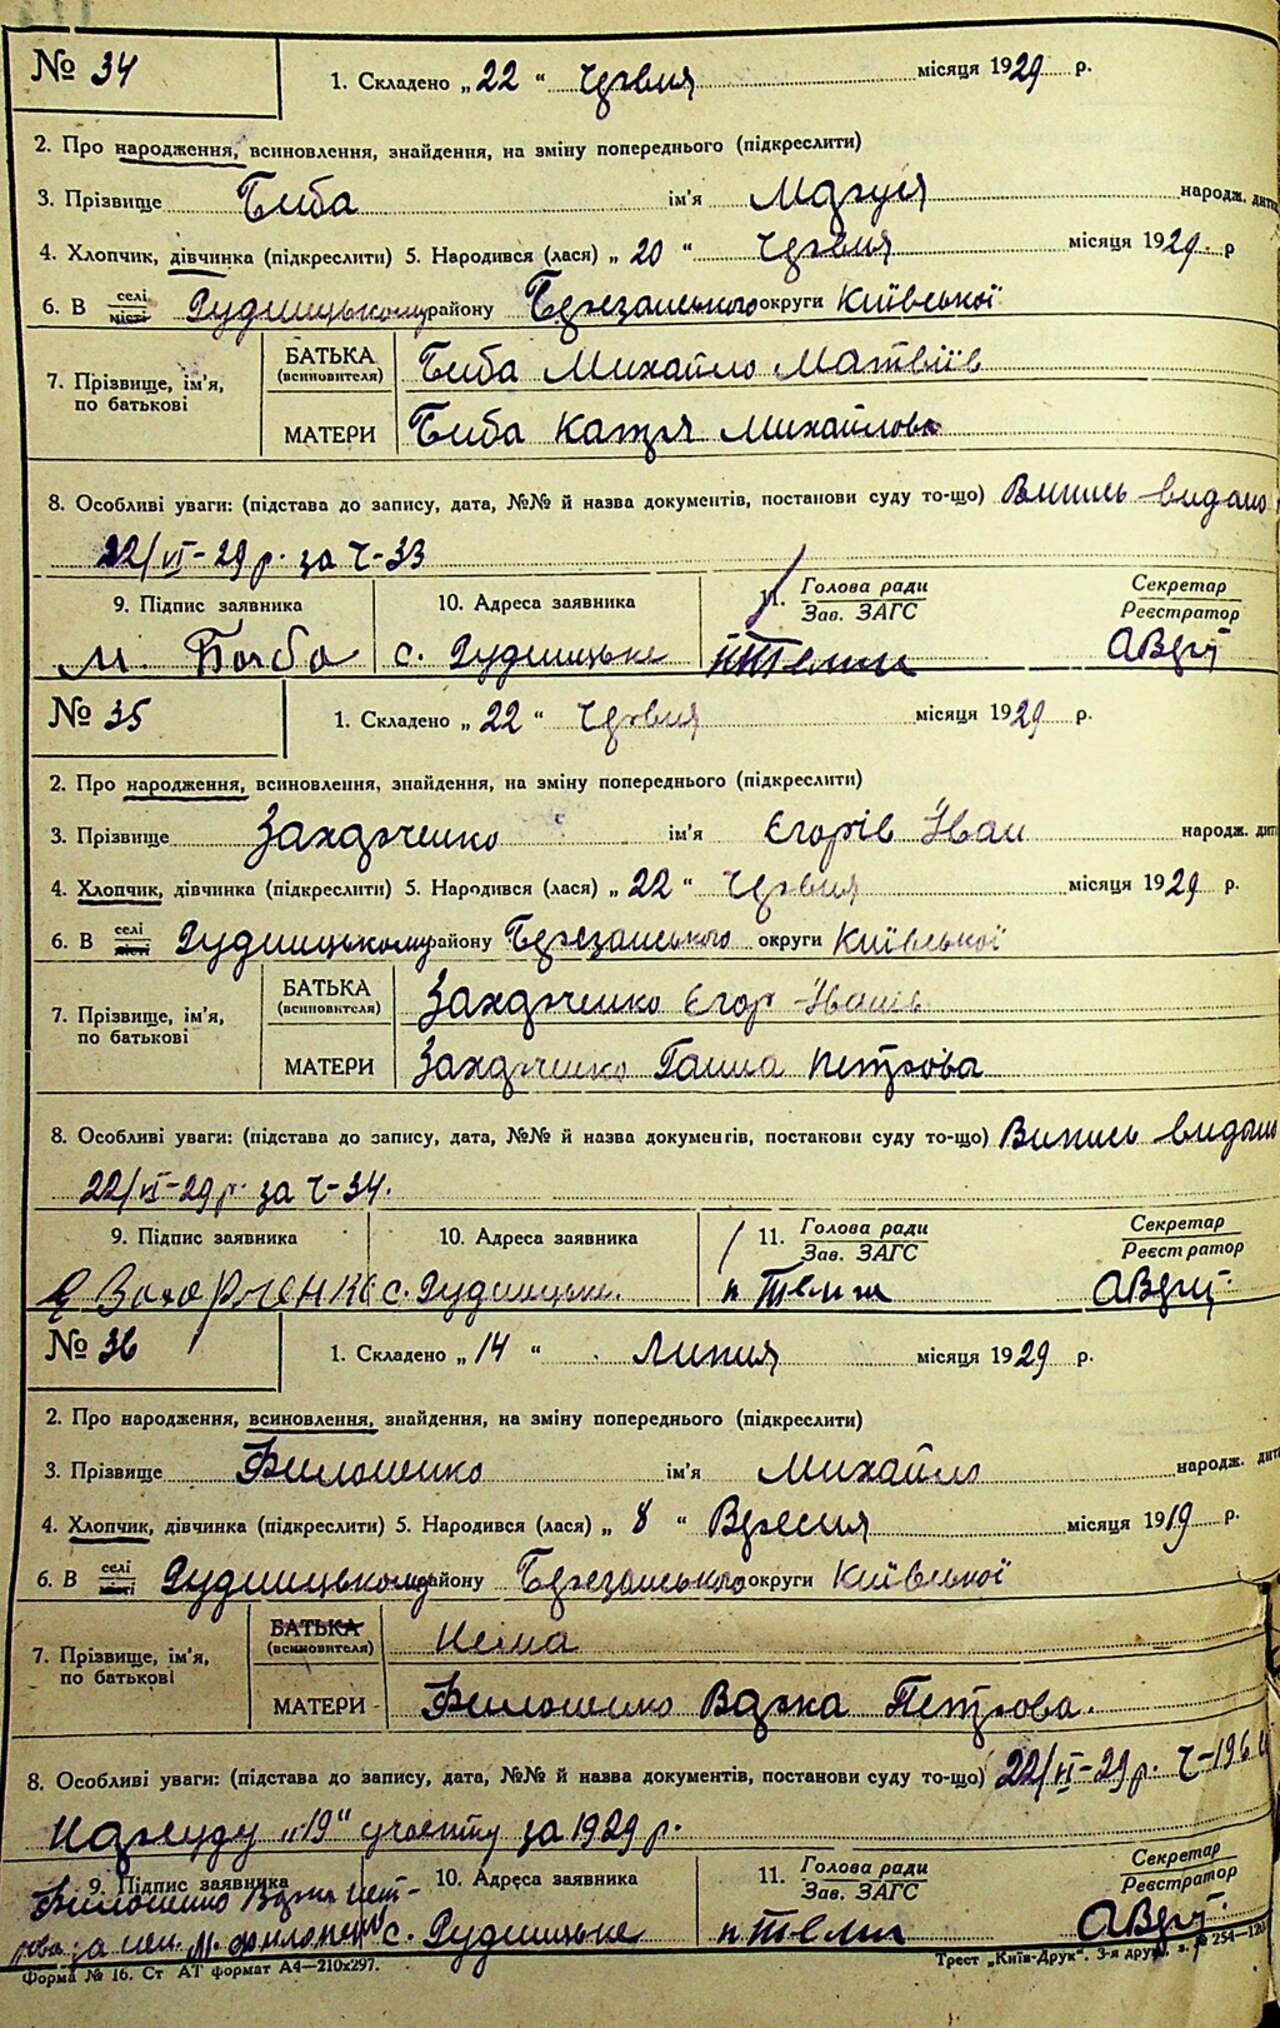 № 34
1. Складено „22“ Червня місяця 1929 р.
2. Про народження, всиновлення, знайдення, на зміну попереднього (підкреслити)
3. Прізвище Биба ім'я Маруся народж. дит
4. Хлопчик, дівчинка (підкреслити) 5. Народився (лася) „20“ Червня місяця 1929. р
6. В селі місті Рудницькому району Березанського округи Київської
7. Прізвище, ім'я, по батькові
БАТЬКА (всиновителя) Биба Михайло Матвіїв
МАТЕРИ Биба Катря Михайлова
8. Особливі уваги: (підстава до запису, дата, №№ й назва документів, постанови суду то-що) Випись видано
22/VI-29 р. за Ч-33
9. Підпис заявника 10. Адреса заявника 11. Голова ради Зав. ЗАГС Секретар Реєстратор
М. Биба с. Рудницьке
№ 35
1. Складено „22“ Червня місяця 1929 р.
2. Про народження, всиновлення, знайдення, на зміну попереднього (підкреслити)
3. Прізвище Захарченко ім'я Єгорів Іван народж. дит
4. Хлопчик, дівчинка (підкреслити) 5. Народився (лася) „22“ Червня місяця 1929 р.
6. В селі місті Рудницькому району Березанського округи Київської
7. Прізвище, ім'я, по батькові
БАТЬКА (всиновителя) Захарченко Єгор Іванів
МАТЕРИ Захарченко Ганна Петрова
8. Особливі уваги: (підстава до запису, дата, №№ й назва документів, постанови суду то-що) Випись видань
22/VI-29 р. за Ч-34.
9. Підпис заявника 10. Адреса заявника 11. Голова ради Зав. ЗАГС Секретар Реєстратор
Захарченко с. Рудницьке.
№ 36
1. Складено „14“ Липня місяця 1929 р.
2. Про народження, всиновлення, знайдення, на зміну попереднього (підкреслити)
3. Прізвище Филоненко ім'я Михайло народж. дит
4. Хлопчик, дівчинка (підкреслити) 5. Народився (лася) „8“ Вересня місяця 1919 р.
6. В селі місті Рудницькому району Березанського округи Київської
7. Прізвище, ім'я, по батькові
БАТЬКА (всиновителя) Нема
МАТЕРИ Филоненко Варка Петрова.
8. Особливі уваги: (підстава до запису, дата, №№ й назва документів, постанови суду то-що) 22/VI-29 р. Ч-196
Нарсуду „19“ участку за 1929 р.
9. Підпис заявника 10. Адреса заявника 11. Голова ради Зав. ЗАГС Секретар Реєстратор
Филоненко Варка Пет-
рова за неп. М. Филоненко с. Рудницьке
Форма № 16. Ст АТ формат А4—210х297.
Трест „Київ-Друк“. 3-я друк. з. № 254—12